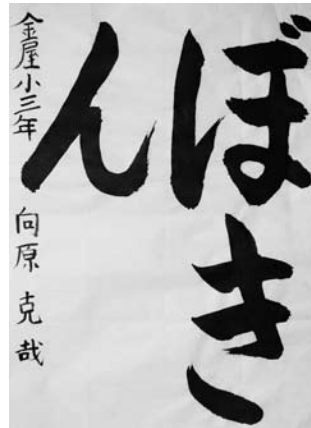 ぼき
ん
金屋小三年 向原 克哉